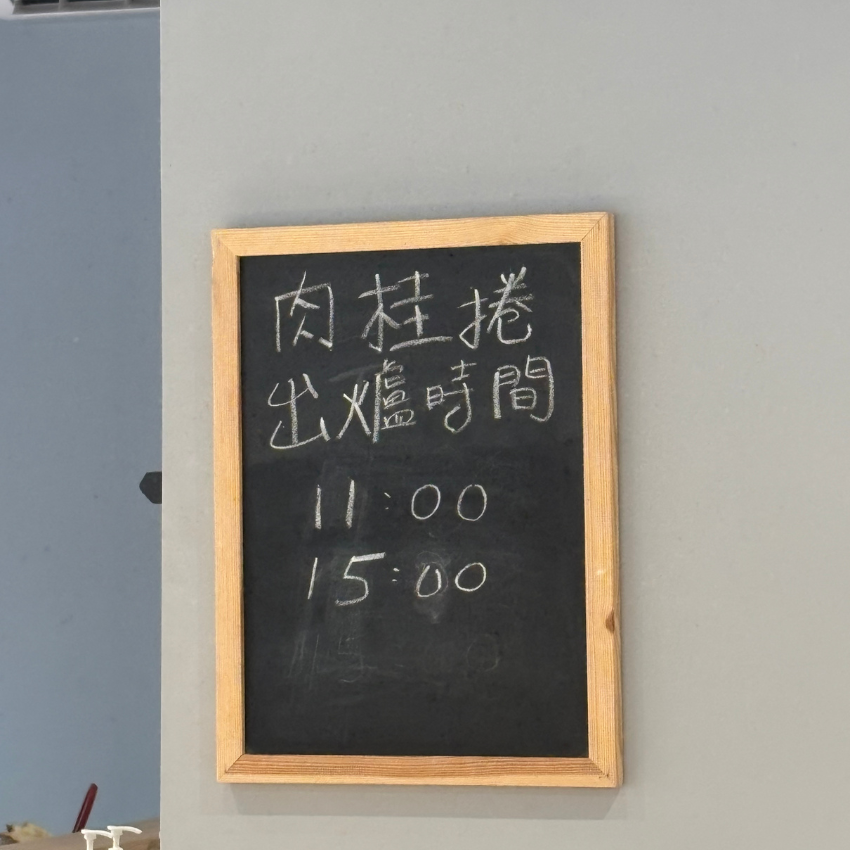 肉桂捲
出爐時間
11:00
15:00